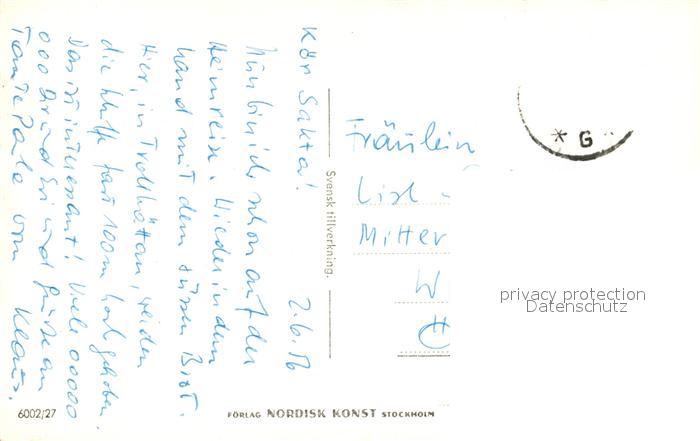 Kör Sakta! 2.6.
Nun bin ich schon auf der
Heimreise. Wieder in dem
Land mit dem süßen Brot.
Hier, in Trollhättan, werden
die Schiffe fast 100 m hoch gehoben.
Das ist interessant! Viele 00000
000 Grüße und
Tante Paula vom Klaus.
Svensk tillverkning.
Fräulein
Lisl
Mitter
W
* G
privacy protection
Datenschutz
6002/27
FÖRLAG NORDISK KONST STOCKHOLM